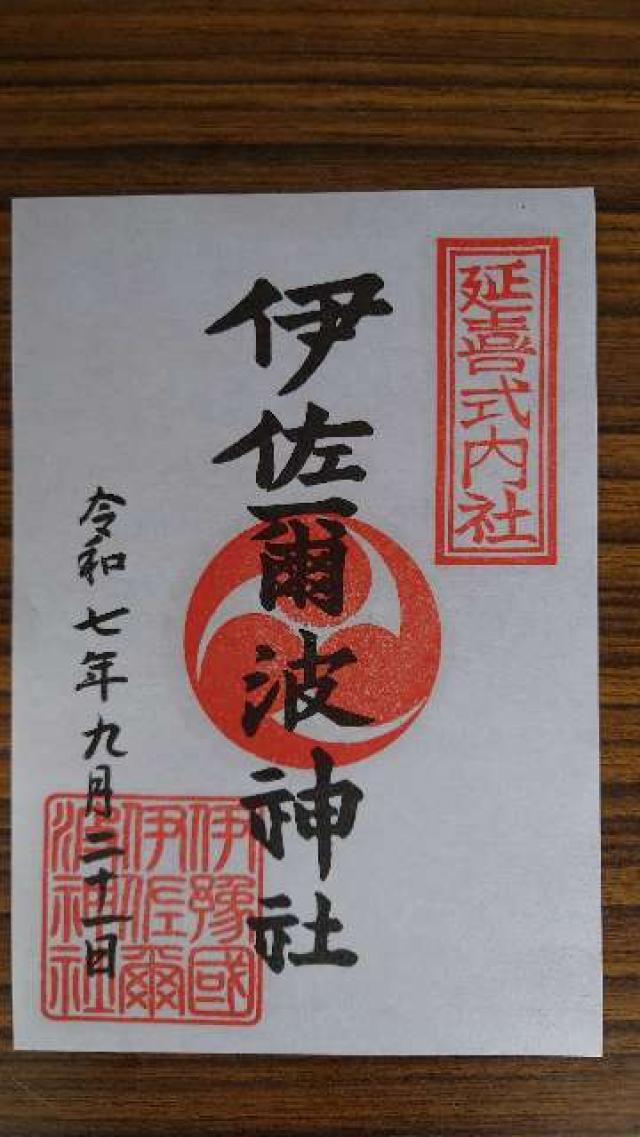 延喜式内社
伊佐爾波神社
令和七年九月二十一日
伊豫國
伊佐爾
波神社